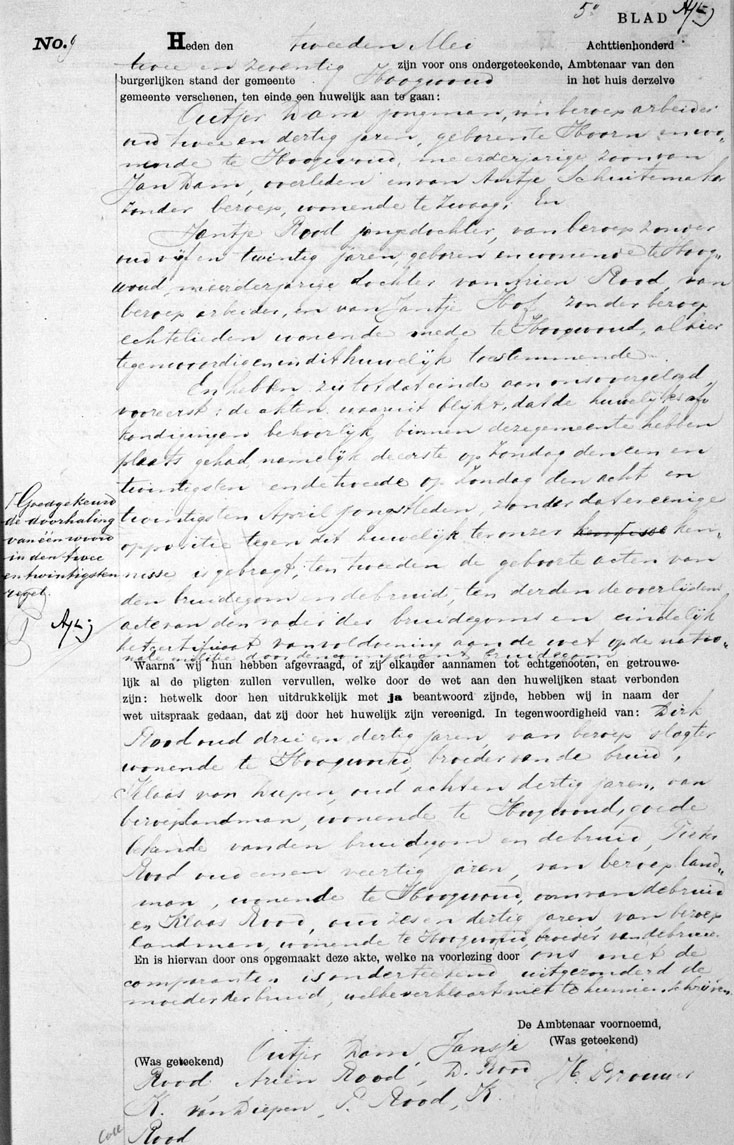 5e BLAD
No. 9 Heden den tweeden Mei Achttienhonderd
twee en zeventig zijn voor ons ondergeteekende, Ambtenaar van den
burgerlijken stand der gemeente Hoogwoud in het huis derzelve
gemeente verschenen, ten einde een huwelijk aan te gaan:
Outjer Dam jongman, van beroep arbeider
oud twee en dertig jaren, geboren te Hoorn en wo-
nende te Hoogwoud, meerderjarige zoon van
Jan Dam, overleden en van Antje Schuitemaker
zonder beroep, wonende te Zwaag; En
Jantje Rood jongedochter, van beroep zonder
oud vijf en twintig jaren, geboren en wonende te Hoog-
woud, meerderjarige dochter van Arien Rood, van
beroep arbeider, en van Jantje zonder beroep
echtelieden wonende mede te Hoogwoud, alhier
tegenwoordig en in dit huwelijk toestemmende.
En hebben zij tot dat einde aan ons overgelegd,
vooreerst: de akten waaruit blijkt, dat de huwelijks af-
kondigingen behoorlijk binnen deze gemeente hebben
plaats gehad, namelijk de eerste op Zondag den een en
twintigsten en de tweede op Zondag den acht en
twintigsten April jongstleden, zonder dat er eenige
oppositie tegen dit huwelijk ter onzer ken-
nisse is gebragt; ten tweeden de geboorte acten van
den bruidegom en de bruid; ten derden de overlijdens
acte van den vader des bruidegoms en eindelijk
het certificaat van voldoening aan de wet op de natio-
nale militie door den bruidegom
Goedgekeurd
de doorhaling
van één woord
in den twee
en twintigsten
regel.
Waarna wij hun hebben afgevraagd, of zij elkander aannamen tot echtgenooten, en getrouwe-
lijk al de pligten zullen vervullen, welke door de wet aan den huwelijken staat verbonden
zijn: hetwelk door hen uitdrukkelijk met ja beantwoord zijnde, hebben wij in naam der
wet uitspraak gedaan, dat zij door het huwelijk zijn vereenigd. In tegenwoordigheid van: Dirk
Rood oud drie en dertig jaren van beroep slagter
wonende te Hoogwoud, broeder van de bruid,
Klaas van Diepen, oud acht en dertig jaren, van
beroep landman, wonende te Hoogwoud, goede
bekende van den bruidegom en de bruid, Pieter
Rood oud een en veertig jaren, van beroep land-
man, wonende te Hoogwoud, oom van de bruid
en Klaas Rood, oud zes en dertig jaren van beroep
landman, wonende te Hoogwoud, broeder van de bruid.
En is hiervan door ons opgemaakt deze akte, welke na voorlezing door ons met de
comparanten is onderteekend uitgezonderd de
moeder der bruid, welke verklaart niet te kunnen schrijven.
De Ambtenaar voornoemd,
(Was geteekend)
(Was geteekend) Outjer Dam, Jantje
Rood Ariën Rood, D. Rood H. Brouwer
K. van Diepen, P. Rood, K.
Rood